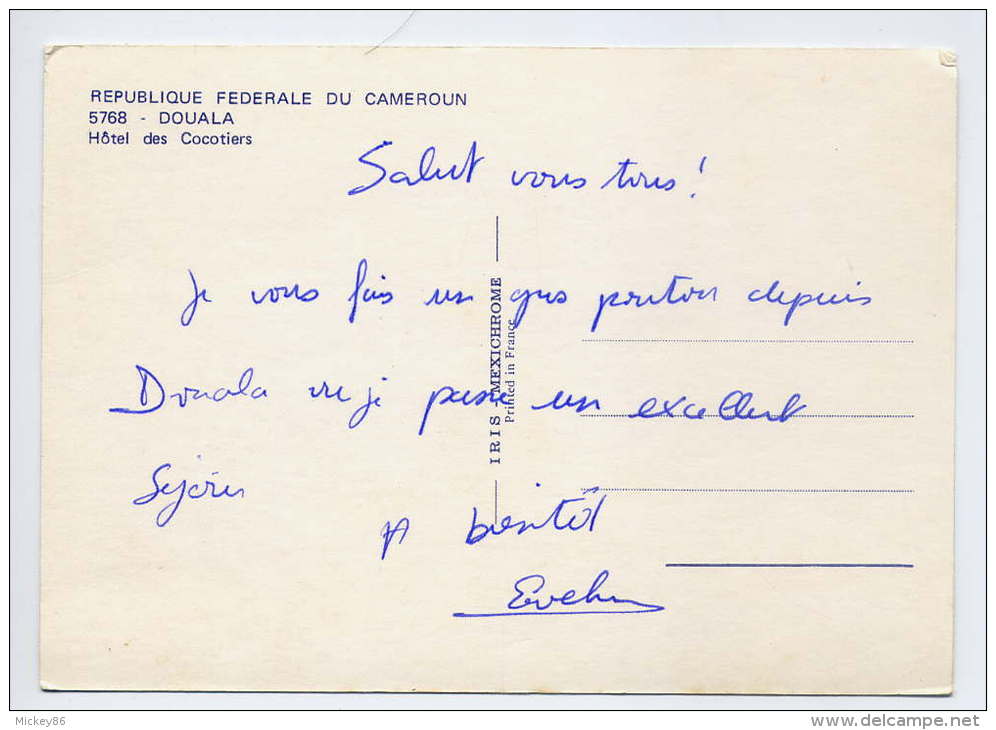 REPUBLIQUE FEDERALE DU CAMEROUN
5768 - DOUALA
Hôtel des Cocotiers
Salut vous tous !
Je vous fais un gros depuis
Douala ou je passe un excellent
Séjour
A bientôt
IRIS - MEXICHROME
Printed in France
Mickey86
www.delcampe.net